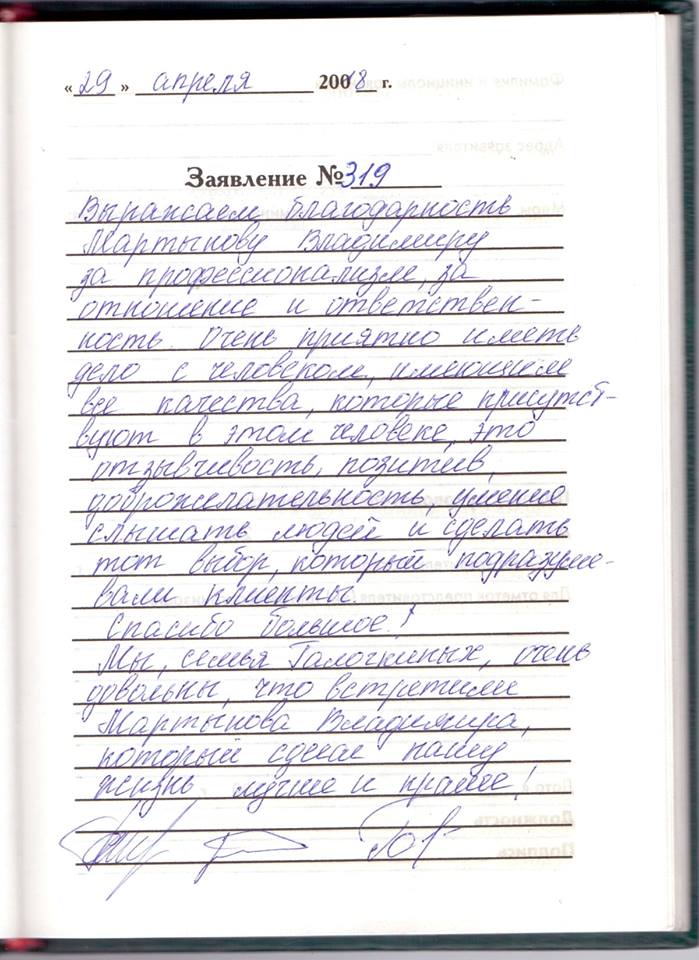 «29» апреля 20018 г.
Заявление № 319
Выражаем благодарность
Мартынову Владимиру
за профессионализм, за
отношение и ответствен-
ность. Очень приятно иметь
дело с человеком, имеющем
все качества, которые присутст-
вуют в этом человеке, это
отзывчивость, позитив,
доброжелательность, умение
слышать людей и сделать
тот выбор, который подразуме-
вали клиенты.
Спасибо большое!
Мы, семья Галочкиных, очень
довольны, что встретили
Мартынова Владимира,
который сделал нашу
жизнь лучше и краше!
Должность
Подпись